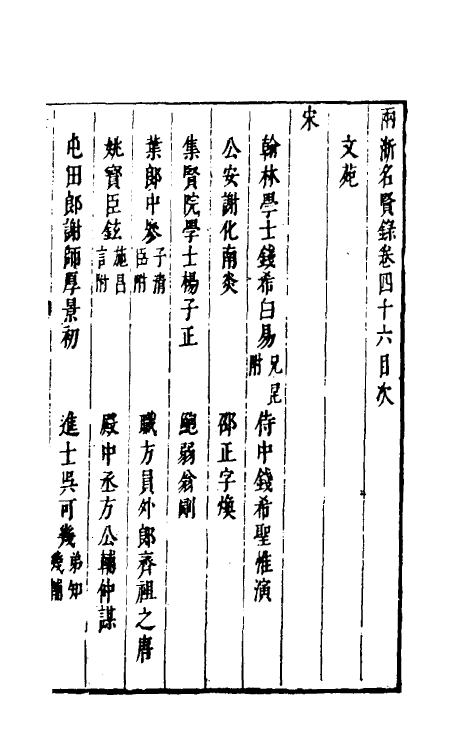 兩浙名賢錄卷四十六目次
文苑
宋
翰林學士錢希白易兄昆附 侍中錢希聖惟演
公安謝化南炎 邵正字煥
集賢院學士楊子正 鮑弱翁剛
葉郎中參子清臣附 職方員外郎齊祖之唐
姚寳臣鉉施昌言附 殿中丞方公輔仲謀
屯田郎謝師厚景初 進士吳可幾弟知幾附